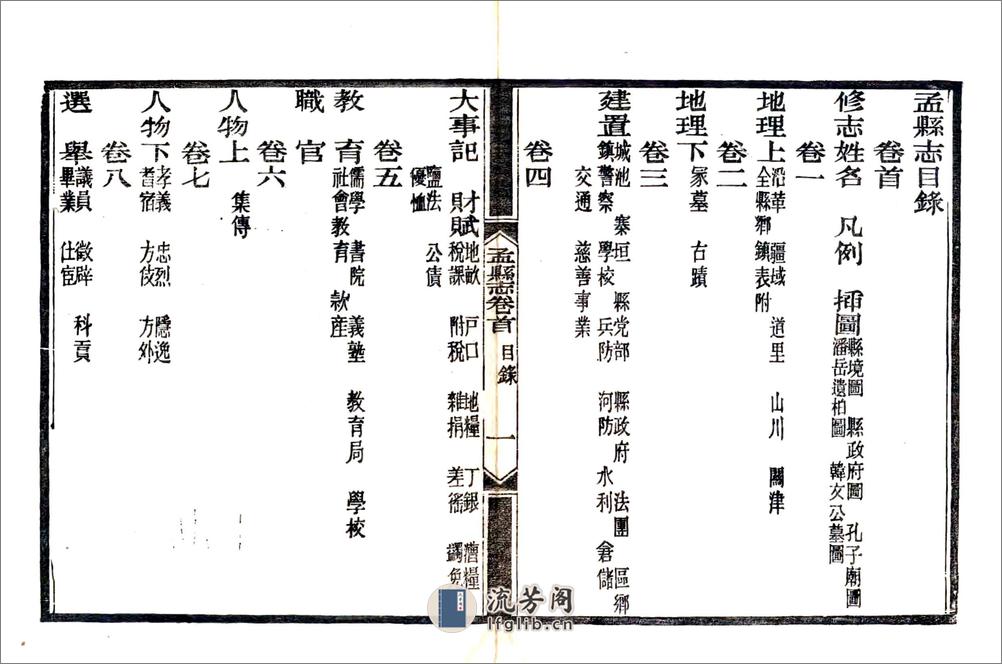 孟縣志目錄
卷首
修志姓名 凡例 插圖 縣境圖 縣政府圖 孔子廟圖
潘岳遺柏圖 韓文公墓圖
卷一
地理上 沿革 疆域 道里 山川 關津
全縣鄉鎮表附
卷二
地理下 冢墓 古蹟
卷三
建置 城池 寨垣 縣党部 縣政府 法團 區鄉
鎮警察 學校 兵防 河防 水利 倉儲
交通 慈善事業
卷四
孟縣志卷首 目錄 一
大事記 財賦 地畝 戶口 地糧 丁銀 漕糧
稅課 附稅 雜捐 差徭 蠲免
鹽法 公債
優恤
卷五
教育 儒學 書院 義塾 教育局 學校
社會教育 款產
職官
卷六
人物上 集傳
卷七
人物下 孝義 忠烈 隱逸
耆宿 方伎 方外
卷八
選舉 議員 徵辟 科貢
畢業 仕宦
流芳阁
lfglib.cn